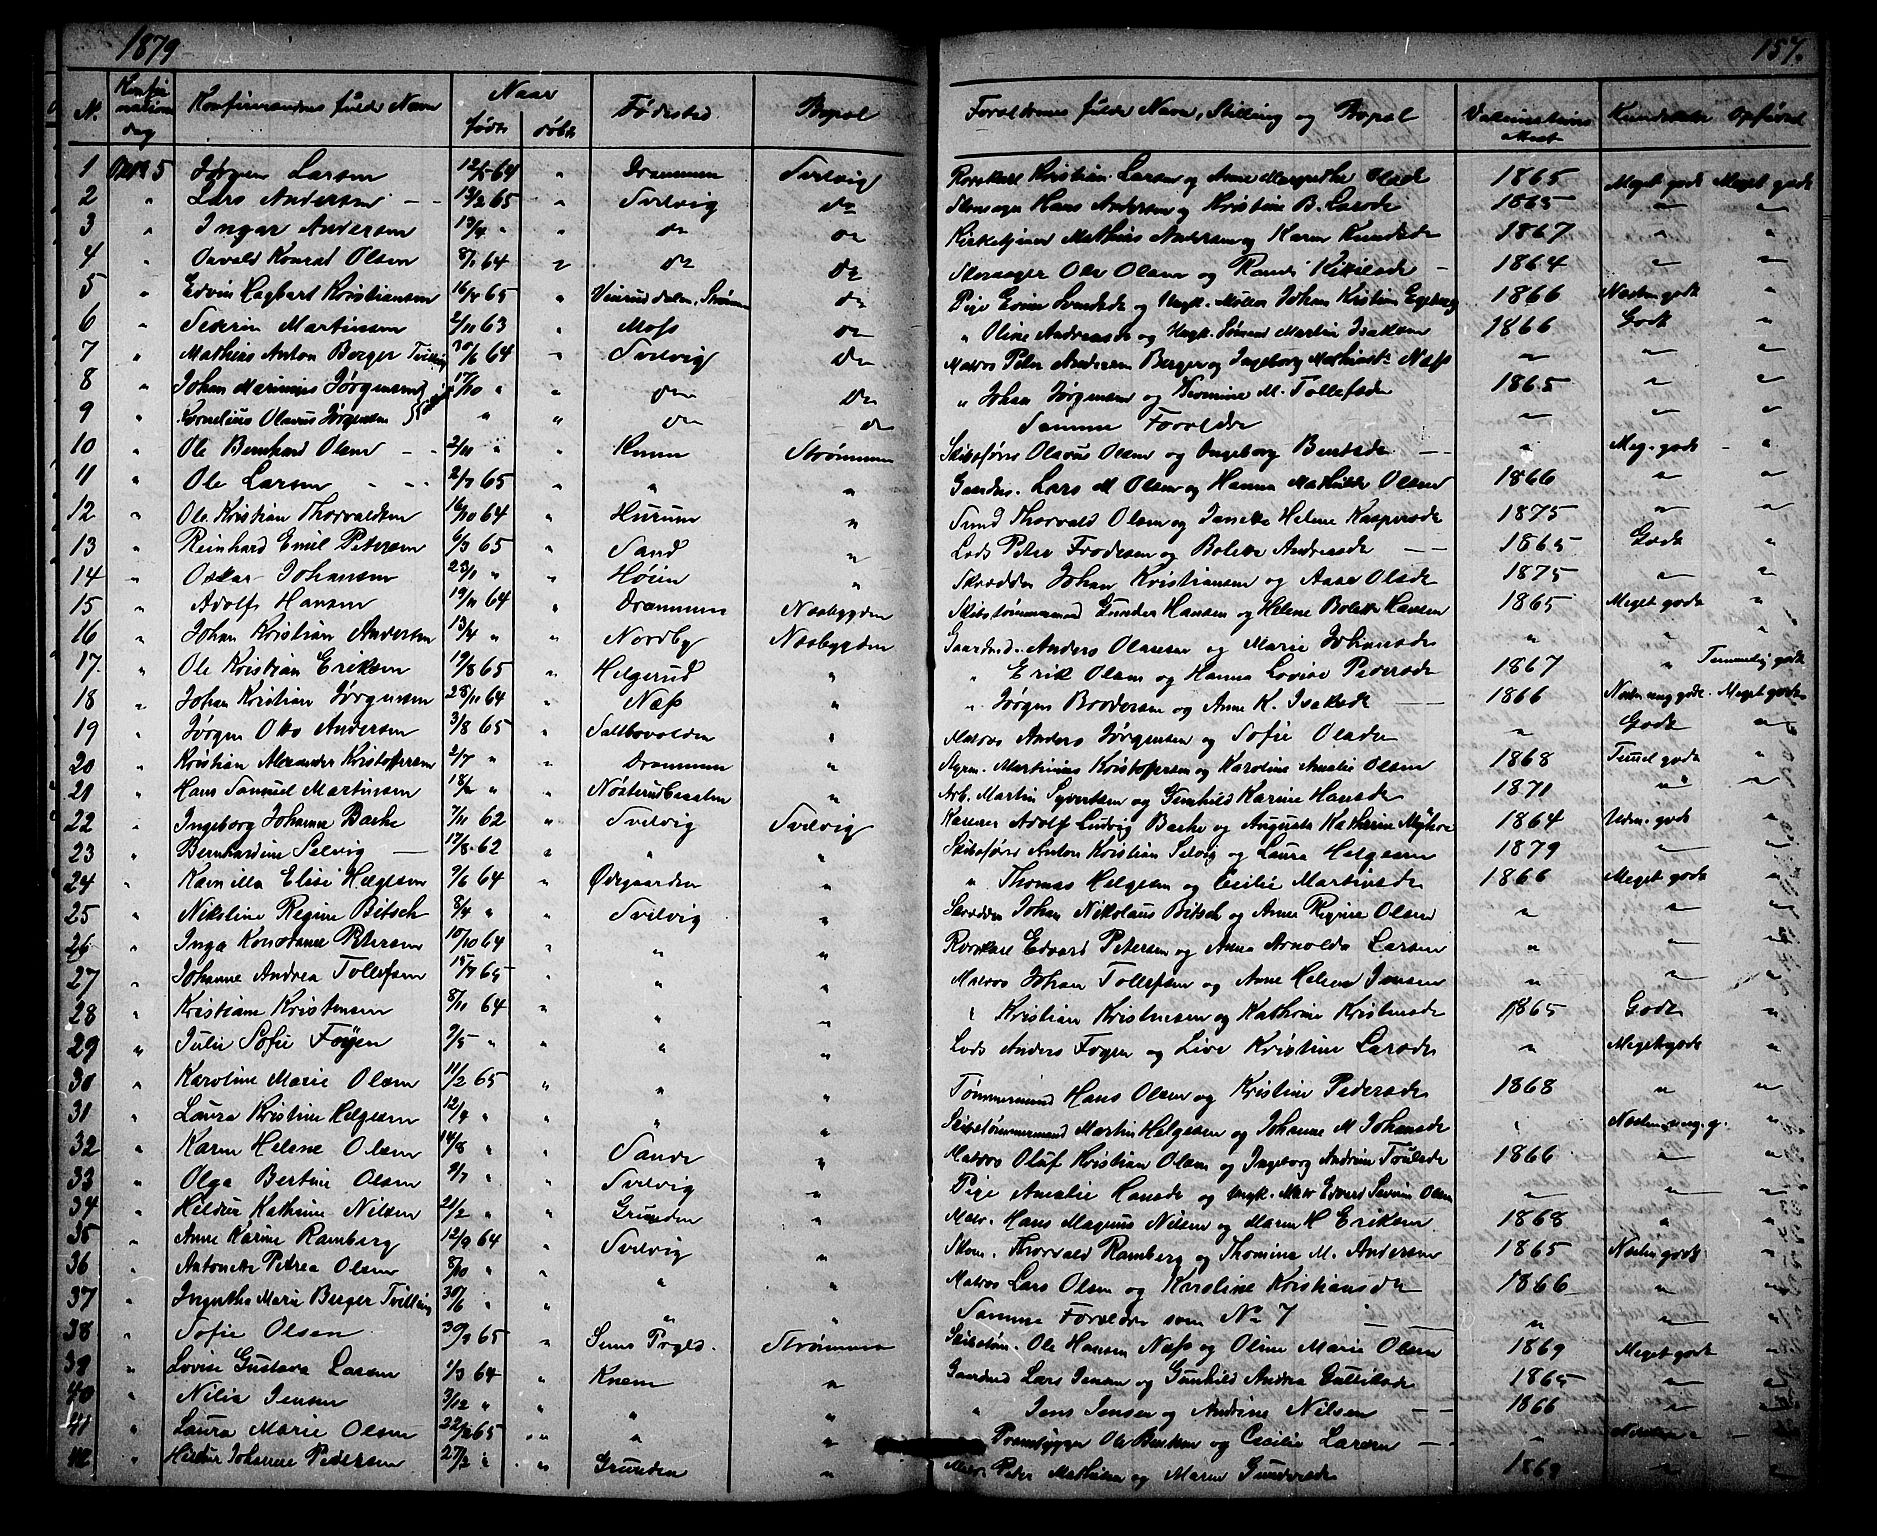 1879
157.
N. Konfirmations dag Konfirmandens fulde Navn Naar født døbt Fødested Bopæl Forældrenes fulde Navn, Stilling og Bopæl Vakcinations Attest Kundskab Opførsel
1 Oktbr 5 Jørgen Larsen 12/5 64 " Drammen Svelvig Kristian Larsen og Anne Margrethe Olsdr 1865 Meget godt Meget godt
2 " Lars Andersen 65 " Svelvig do Hans Andersen og Kristine B. Larsdr 1865 " "
3 " Ingar Andersen 19/4 " " do do Kirketjener Mathias Andersen og Karen Knudsdr 1867 " "
4 " Osvald Konrad Olsen 8/1 64 " do do Ole Olsen og Randi 1864 " "
5 " Edvin Hagbart Kristiansen 16/4 65 " Strømm do Pige Evine og Ungk. Møller Johan Kristian Engebrg 1866 Næsten godt "
6 " Severin Martinsen 2/11 63 " Moss do " Oline Andreasdr og Ungk. Sømand Martin Isaksen 1866 Godt "
7 " Mathias Anton Berger Tvilling 30/6 64 " Svelvig do Matros Peter Andersen Berger og Ingeborg Mathisdr Næss " " "
8 " Johan Marinius Jørgensen 17/10 " " do do " Johan Jørgensen og M. Tollefsdr 1865 " "
9 " Kornelius Olavus Jørgensen " " do do Samme Forældre " " "
10 " Ole Bernhard Olsen 2/11 " " Knem Strømmen Skibsfører Olavus Olsen og Ingeborg Berntsdr " Meg. godt "
11 " Ole Larsen 2/7 65 " " " Gaardm. Lars M Olsen og Hanna Mathilde Olsen 1866 " "
12 " Ole Kristian Thorvaldsen 16/10 64 " Hurum " Thorvald Olsen og Janette Helene Kaspersdr 1875 " "
13 " Reinhard Emil Petersen 6/3 65 " Sand " Lods Peter Frodesen og Bolette Andreasdr 1865 Godt "
14 " Oskar Johansen 23/1 " " Høien " Skrædder Johan Kristiansen og Aase Olsdr 1875 " "
15 " Adolf Hansen 19/11 64 " Drammen Næsbygden Skibstømmermand Gunder Hansen og Helene Bolette Hansen 1865 Meget godt "
16 " Johan Kristian Andersen 13/4 " " Nordby Næsbygden Gaardmd. Anders Olavesen og Marie Johansdr " " "
17. " Ole Kristian Eriksen 19/8 65 " Helgerud " " Erik Olsen og Hanna Lovise Pedersdr 1867 " Temmelig godt
18 " Johan Kristian Jørgensen 28/11 64 " Næss " " Jørgen Brodersen og Anne K. Isaksdr 1866 Næsten meg godt. Meget godt
19 " Jørgen Otto Andersen 3/8 65 " Saltbovolden " Matros Anders Jørgensen og Sofie Olsdr " Godt "
20 " Kristian Alexander Kristoffersen 2/7 " " Drammen " Styrm. Martinius Kristoffersen og Karoline Amalie Olsen 1868 Temel godt "
21 " Hans Samuel Martinsen " " Nøsterudbraaten " Arb. Martin Syvertsen og Gunhild Karine Hansdr 1871 " "
22 " Ingeborg Johanne Bache 7/11 62 " Svelvig Svelvig Kasserer Adolf Ludvig Bache og Augusta Katharine 1864 Udm. godt "
23 " Bernhardine Selvig 17/8 62 " " " Skibsfører Anton Kristian Selvig og Laura Helgesen 1879 " "
24 " Kamilla Elise Helgesen 9/6 64 " Ødegaarden " " Thomas Helgesen og Cecilie Martinsdr 1866 Meget godt "
25 " Nikoline Regine Bitsch 8/4 " " Svelvig " Skrædder Johan Nikolaus Bitsch og Anne Regine Olsen " " "
26 " Inga Konstance Petersen 10/10 64 " " " Edvard Petersen og Anna Arnolda Larsen " " "
27 " Johanne Andrea Tollefsen 15/7 65 " " " Matros Johan Tollefsen og Anne Helene Jensen " " "
28 " Kristiane Kristensen 8/11 64 " " " " Kristian Kristensen og Kathrine Kristensdr 1865 Godt "
29 " Julie Sofie Foyen 9/5 " " " " Lods Anders Foyen og Live Kristine Larsdr " Meget godt "
30 " Karoline Marie Olsen 11/2 65 " " " Tømmermand Hans Olsen og Kristine Pedersdr 1868 " "
31 " Laura Kristine Helgesen 12/4 " " " " Skibstømmermand Martin Helgesen og Johanne M Johansdr " Næsten meg. g. "
32 " Karen Helene Olsen 14/8 " " Sande " Matros Oluf Kristian Olsen og Ingeborg Andrine 1866 " "
33 " Olga Bertine Olsen " " Svelvig " Pige Amalie Hansdr og Ungk. Matr Edvard Severin Olsen " " "
34 " Heldur Kathrine Nilsen 21/2 " " Grunden " Matr. Hans Magnus Nilsen og Maren H Eriksen 1868 " "
35 " Anne Karine Ramberg 12/9 64 " Svelvig " Skom. Thorvald Ramberg og Thomine M. Andersen 1865 Næsten godt "
36 " Antonette Petrea Olsen 8/10 " " " " Matros Lars Olsen og Karoline Kristiansdr 1866 " "
37 " Ingerthe Marie Berger Tvilling 30/6 " " " " Samme Forældre som No 7 " " "
38 " Sofie Olsen 65 " Sems Prgld. Strømmen Skibstøm. Ole Hansen Næss og Oline Marie Olsen 1869 Meget godt "
39 " Lovise Gustava Larsen 1/3 64 " Knem " Gaardmd Lars Jensen og Gunhild Andrea Gulliksdr 1865 " "
40 " Nilia Jensen 3/12 " " " " " Jens Jensen og Andrine Nilsen 1866 " "
41 " Laura Marie Olsen 65 " " " Ole Berntsen og Cecilie Larsen " "
42 " Heldur Johanne Pedersen 27/2 " " Grunden " Matr. Peter Mathisen og Maren Gundersdr 1869 " "